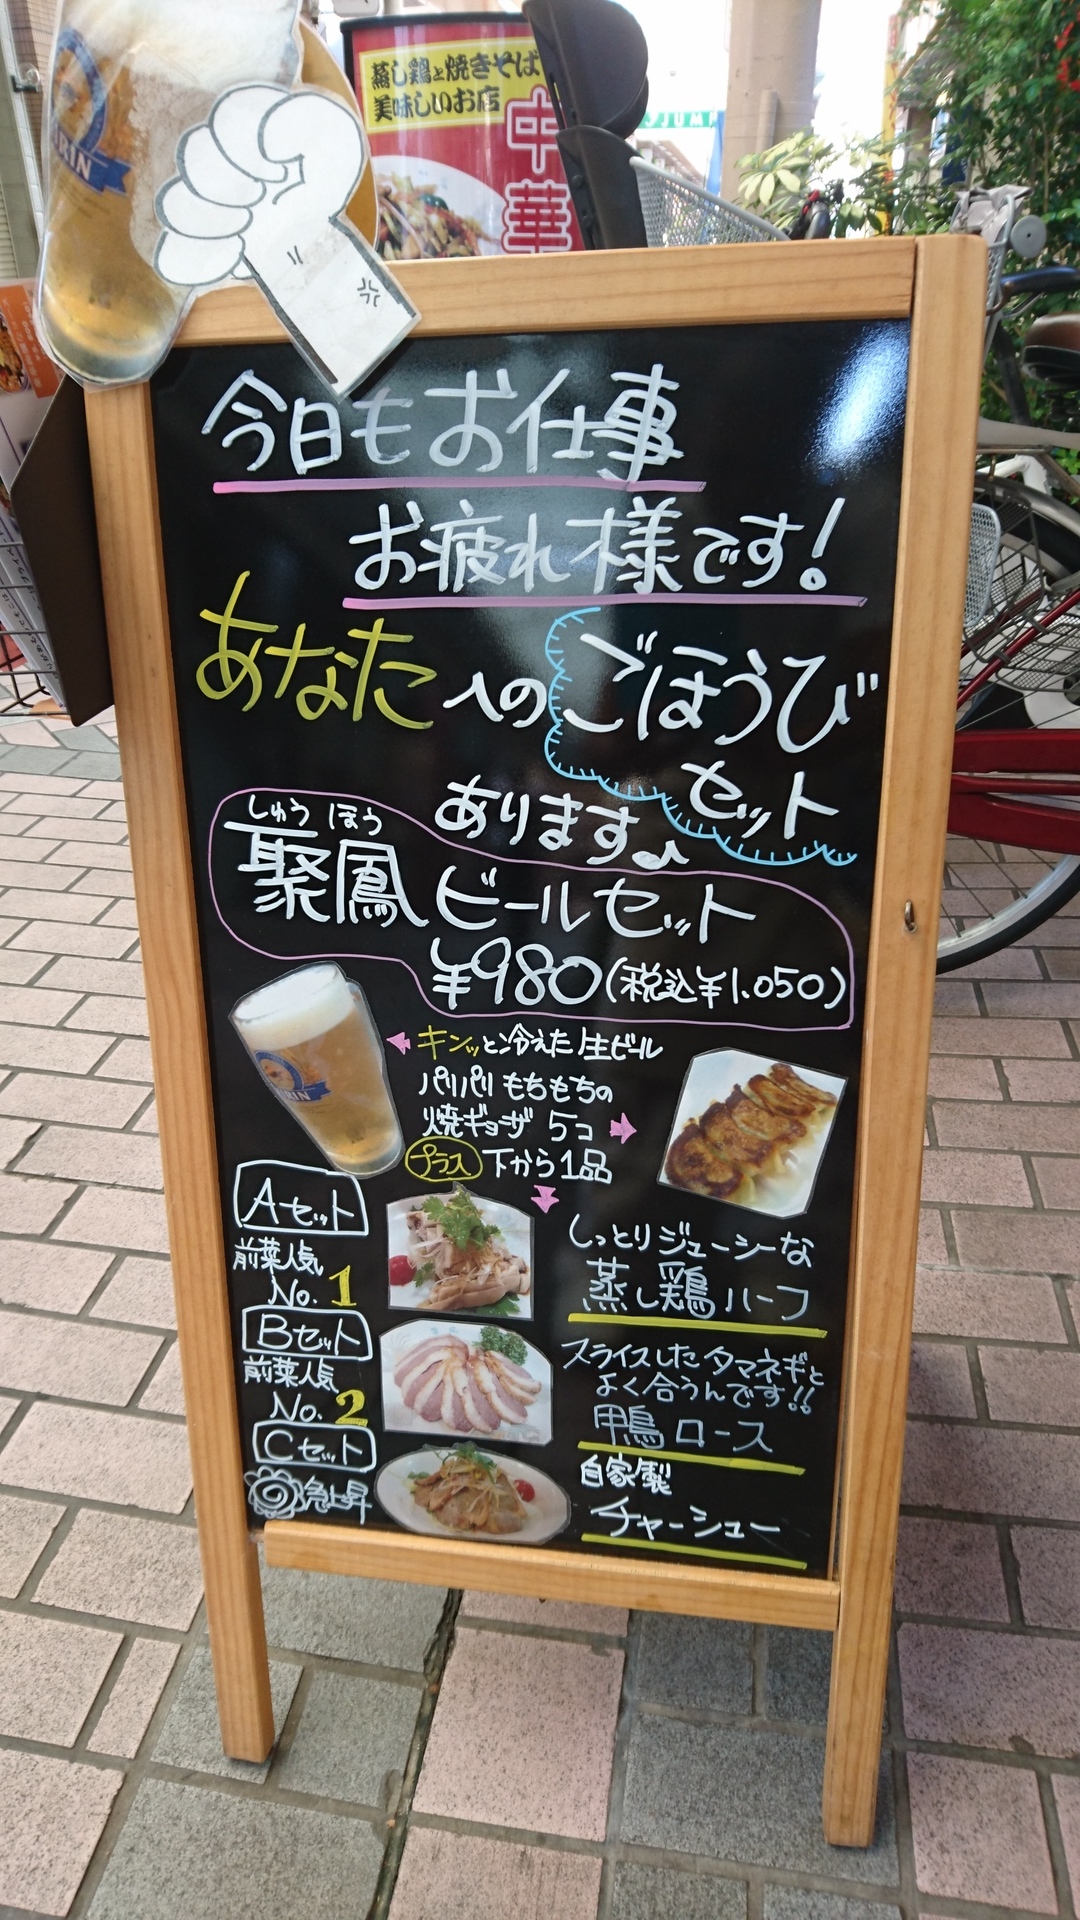 蒸し鶏と焼きそば
美味しいお店
中華
KIRIN
今日もお仕事
お疲れ様です!
あなたへのごほうび
セット
あります♪
しゅう ほう
聚鳳ビールセット
¥980(税込¥1.050)
キンッと冷えた生ビール
パリパリもちもちの
焼ギョーザ 5コ
プラス 下から1品
Aセット
前菜人気
No.1
しっとりジューシーな
蒸し鶏ハーフ
Bセット
前菜人気
No.2
スライスしたタマネギと
よく合うんです!!
鴨ロース
Cセット
急上昇
自家製
チャーシュー